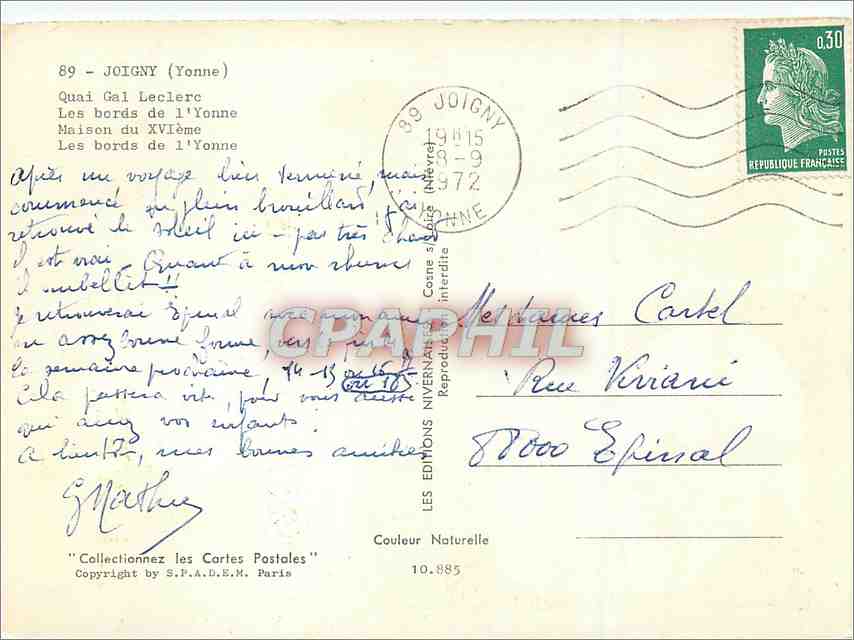 89 - JOIGNY (Yonne)
Quai Gal Leclerc
Les bords de l'Yonne
Maison du XVIème
Les bords de l'Yonne
après un voyage bien terminé, mais
commencé en plein brouillard, j'ai
retrouvé le soleil ici - pas très chaud
il est vrai - Quant à mon rhume
il embellit !!
je retrouverai Epinal avec maman
en assez bonne forme, vers
la semaine prochaine, 14-15 ou 16
ou 18
Cela passera vite, pour vous aussi
qui avez vos enfants.
A bientôt, mes bonnes amitiés
GMathieu
"Collectionnez les Cartes Postales"
Copyright by S.P.A.D.E.M. Paris
LES EDITIONS NIVERNAISES Cosne s/Loire (Nièvre)
Reproduction interdite
Couleur Naturelle
10.885
89 JOIGNY
19H15
8-9
1972
YONNE
0,30
POSTES
REPUBLIQUE FRANÇAISE
Mesdames Cartel
Rue Viviani
88000 Epinal
CPAPHIL